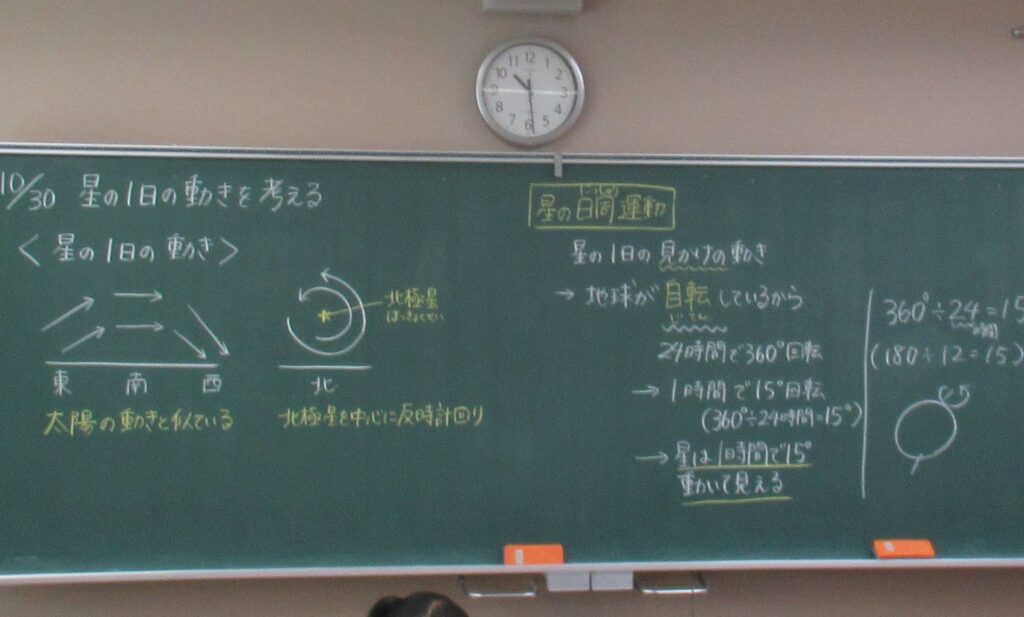 10/30 星の1日の動きを考える
<星の1日の動き>
北極星
ほっきょくせい
東 南 西
北
太陽の動きと似ている
北極星を中心に反時計回り
にっしゅう
星の日周運動
星の1日の見かけの動き
→ 地球が自転しているから
じてん
24時間で360°回転
→ 1時間で15°回転
(360°÷24時間=15°)
→ 星は1時間で15°
動いて見える
360°÷24=15
時間
(180÷12=15)
12
11
1
10
2
9
3
8
4
7
5
6